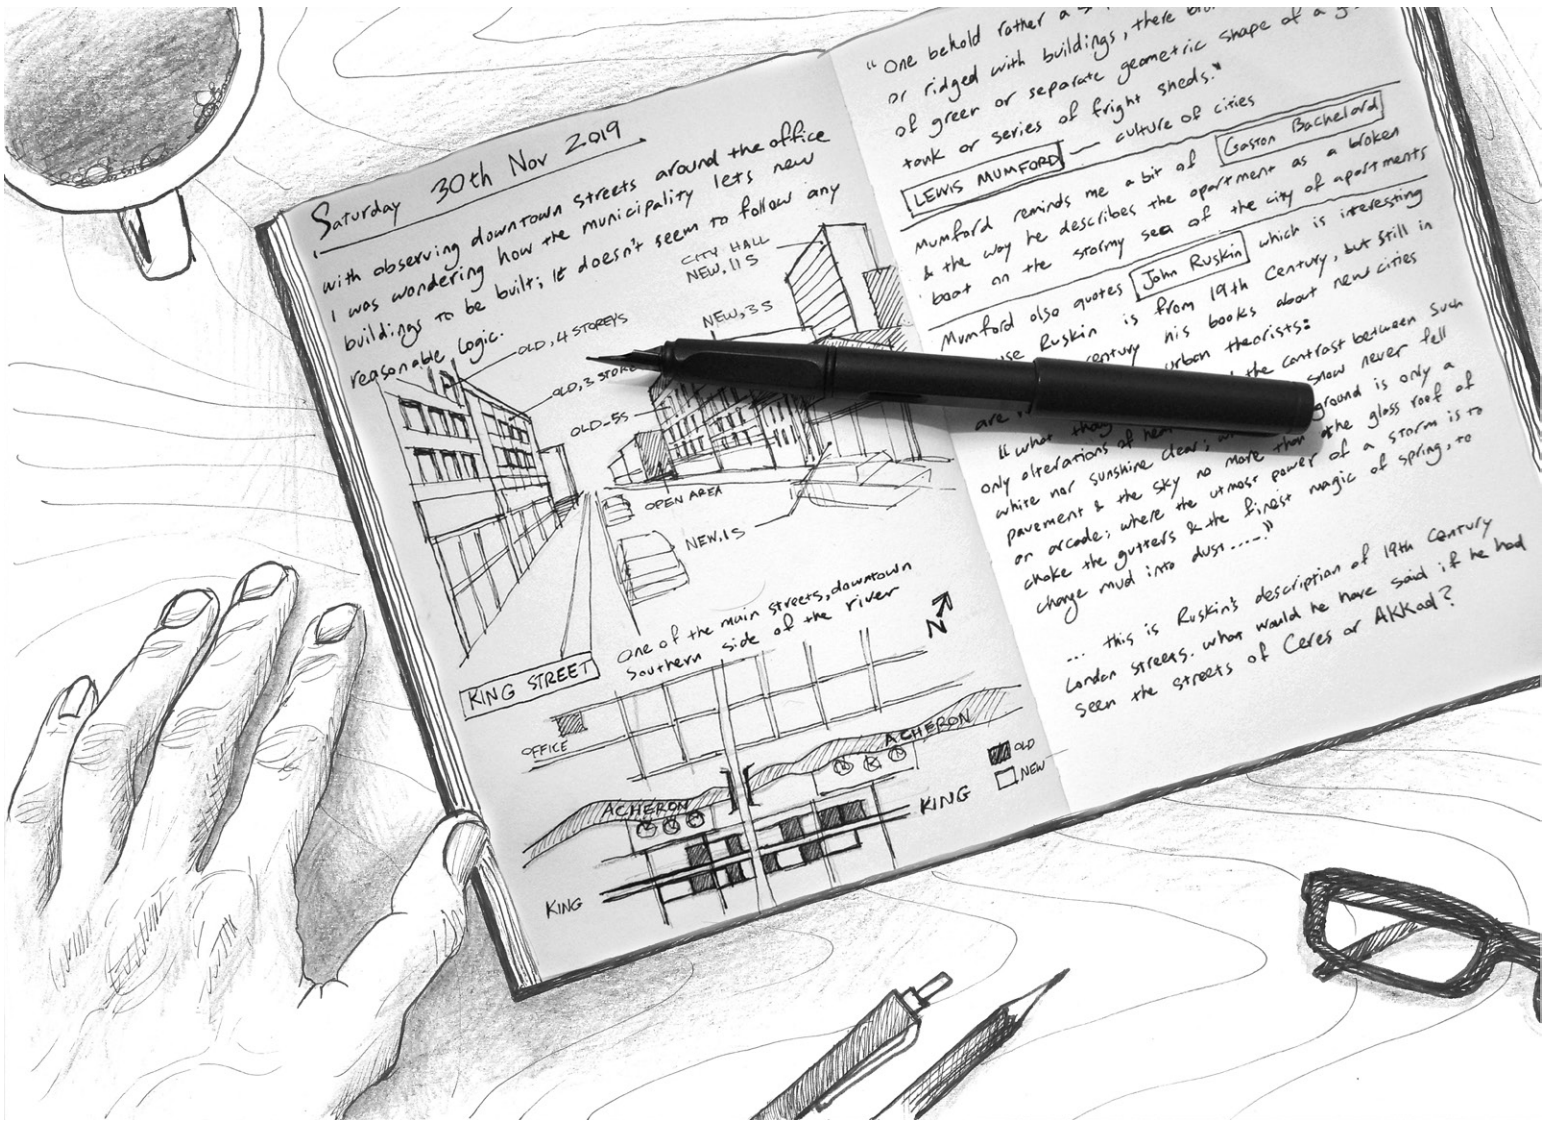 Saturday 30th Nov 2019
with observing downtown streets around the office
I was wondering how the municipality lets new
buildings to be built; it doesn't seem to follow any
reasonable logic.
CITY HALL
NEW, 11 S
NEW, 3 S
OLD, 4 STOREYS
OLD, 3 STORE
OLD_5S
OPEN AREA
NEW, 1S
One of the main streets, downtown
Southern side of the river
KING STREET
N
OFFICE
ACHERON
ACHERON
OLD
NEW
KING
KING
"One behold rather a
or ridged with buildings, there
of greer or separate geometric shape of a
tank or series of fright sheds."
LEWIS MUMFORD — culture of cities
Mumford reminds me a bit of Gaston Bachelard
& the way he describes the apartment as a broken
boat on the stormy sea of the city of apartments
Mumford also quotes John Ruskin which is interesting
use Ruskin is from 19th Century, but still in
century his books about new cities
are urban theorists:
"what the contrast between such
only alterations of snow never fell
white nor sunshine clear; ground is only a
pavement & the sky no more than the glass roof of
an arcade; where the utmost power of a storm is to
choke the gutters & the finest magic of spring, to
change mud into dust....."
... this is Ruskin's description of 19th Century
London streets. what would he have said if he had
seen the streets of Ceres or AKKad?